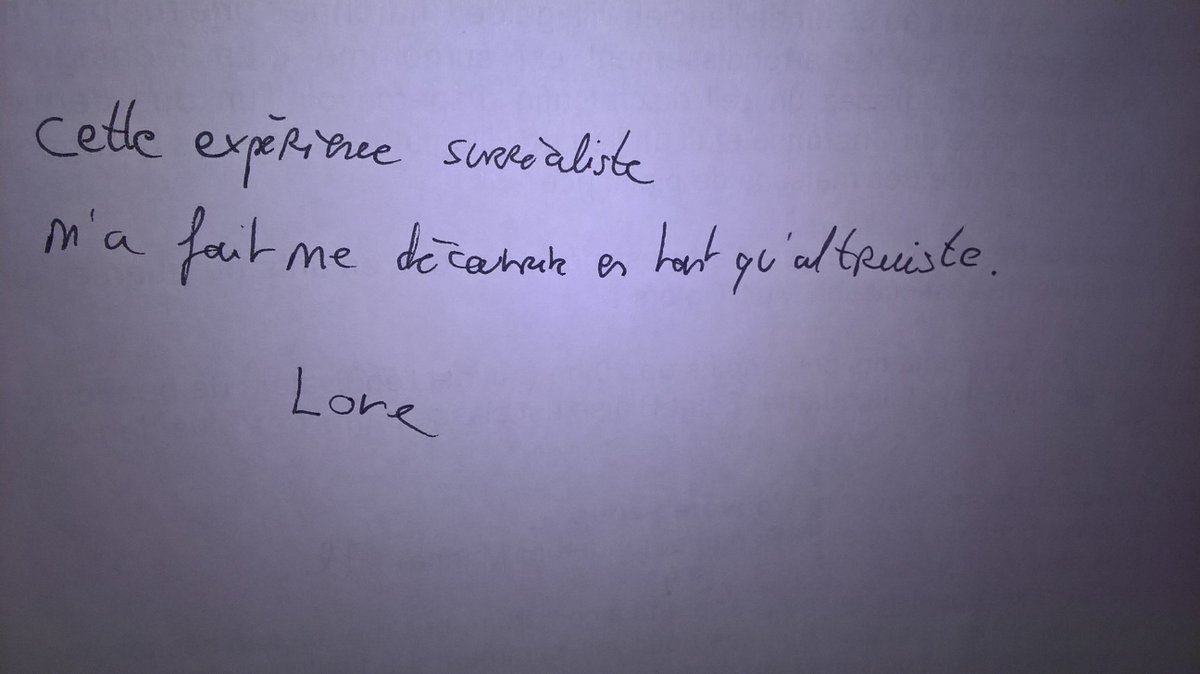 Cette expérience surréaliste
m'a fait me découvrir en tant qu'altruiste.
Lore